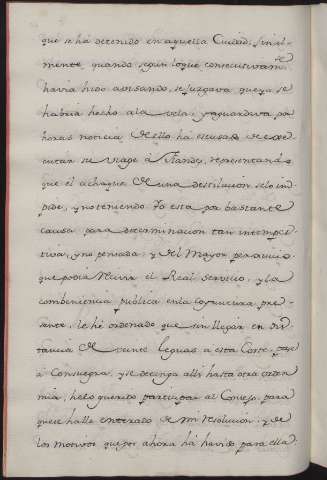 que se há detenido en aquella Ciudad, finalmente
quando segun loque consecutivam.te
havia hido avisando, se juzgava queya se
habria hecho ala vela, y aguardava por
horas noticia de ello, há escusado el exe-
cutar su viage á Flandes, representando
que el achaque de una destilacion selo im-
pide, y no teniendo Yo esta por bastante
causa para determinacion tan intempes-
tiva, y no pensada, y del Mayor perjuicio
que podia recivir el Real servicio, y la
combeniencia publica enla Coyuntura pre-
sente, le hé ordenado que sin llegar en dis-
tancia de veinte leguas a esta Corte, pase
á Consuegra, y se detenga alli hasta otra orden
mia, helo querido participar al Consejo, para
quese halle enterado de mi resolucion, y de
los motivos quepor ahora há havido para ella.